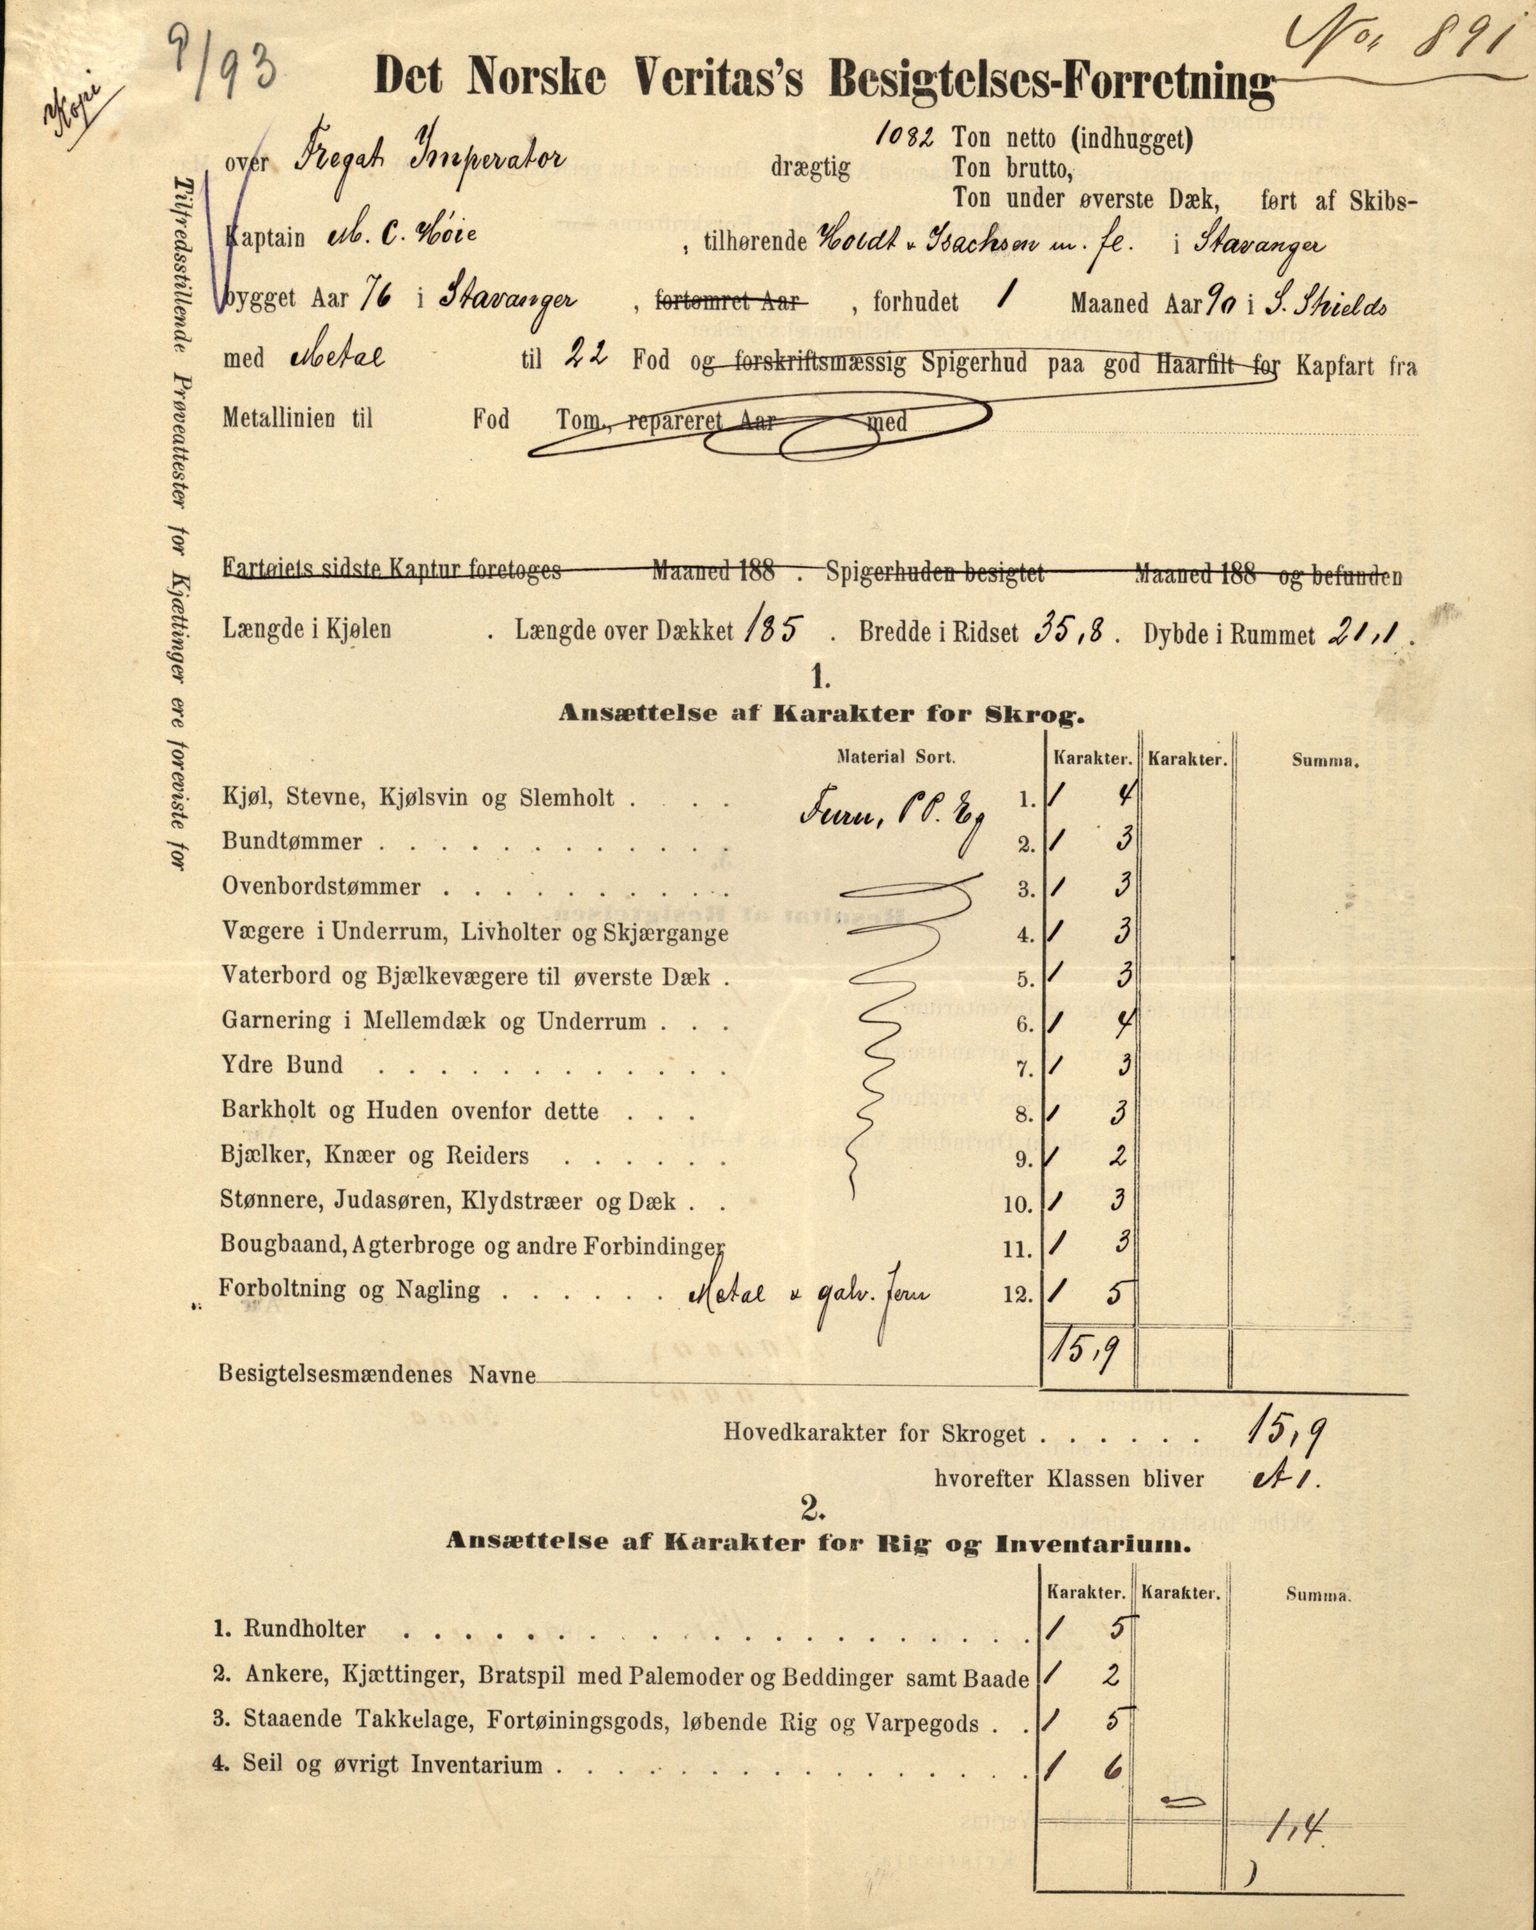 No. 891
9/93
Kopi
Det Norske Veritas's Besigtelses-Forretning
1082 Ton netto (indhugget)
over Fregat Imperator drægtig Ton brutto,
Ton under øverste Dæk, ført af Skibs-
Kaptain M. C. Høie , tilhørende Holdt & Isachsen m. fl. i Stavanger
bygget Aar 76 i Stavanger , fortømret Aar , forhudet 1 Maaned Aar 90 i S. Shields
med Metal til 22 Fod og forskriftsmæssig Spigerhud paa god Haarfilt for Kapfart fra
Metallinien til Fod Tom., repareret Aar med
Fartøiets sidste Kaptur foretoges Maaned 188 . Spigerhuden besigtet Maaned 188 og befunden
Længde i Kjølen . Længde over Dækket 185 . Bredde i Ridset 35,8 . Dybde i Rummet 21,1 .
Tilfredsstillende Prøveattester for Kjættinger ere foreviste for
1.
Ansættelse af Karakter for Skrog.
Material Sort. Karakter. Karakter. Summa.
Kjøl, Stevne, Kjølsvin og Slemholt . . . Furu, P P. Eg 1. 1 4
Bundtømmer . . . . . . . . . . . . 2. 1 3
Ovenbordstømmer . . . . . . . . . . 3. 1 3
Vægere i Underrum, Livholter og Skjærgange 4. 1 3
Vaterbord og Bjælkevægere til øverste Dæk . 5. 1 3
Garnering i Mellemdæk og Underrum . . . 6. 1 4
Ydre Bund . . . . . . . . . . . . 7. 1 3
Barkholt og Huden ovenfor dette . . . 8. 1 3
Bjælker, Knæer og Reiders . . . . . . 9. 1 2
Stønnere, Judasøren, Klydstræer og Dæk . . 10. 1 3
Bougbaand, Agterbroge og andre Forbindinger 11. 1 3
Forboltning og Nagling . . . . . . Metal & galv. Jern 12. 1 5
15,9
Besigtelsesmændenes Navne
Hovedkarakter for Skroget . . . . . . 15,9
hvorefter Klassen bliver A 1.
2.
Ansættelse af Karakter for Rig og Inventarium.
Karakter. Karakter. Summa.
1. Rundholter . . . . . . . . . . . . . . . . 1 5
2. Ankere, Kjættinger, Bratspil med Palemoder og Beddinger samt Baade 1 2
3. Staaende Takkelage, Fortøiningsgods, løbende Rig og Varpegods . . 1 5
4. Seil og øvrigt Inventarium . . . . . . . . . . . . 1 6
1,4